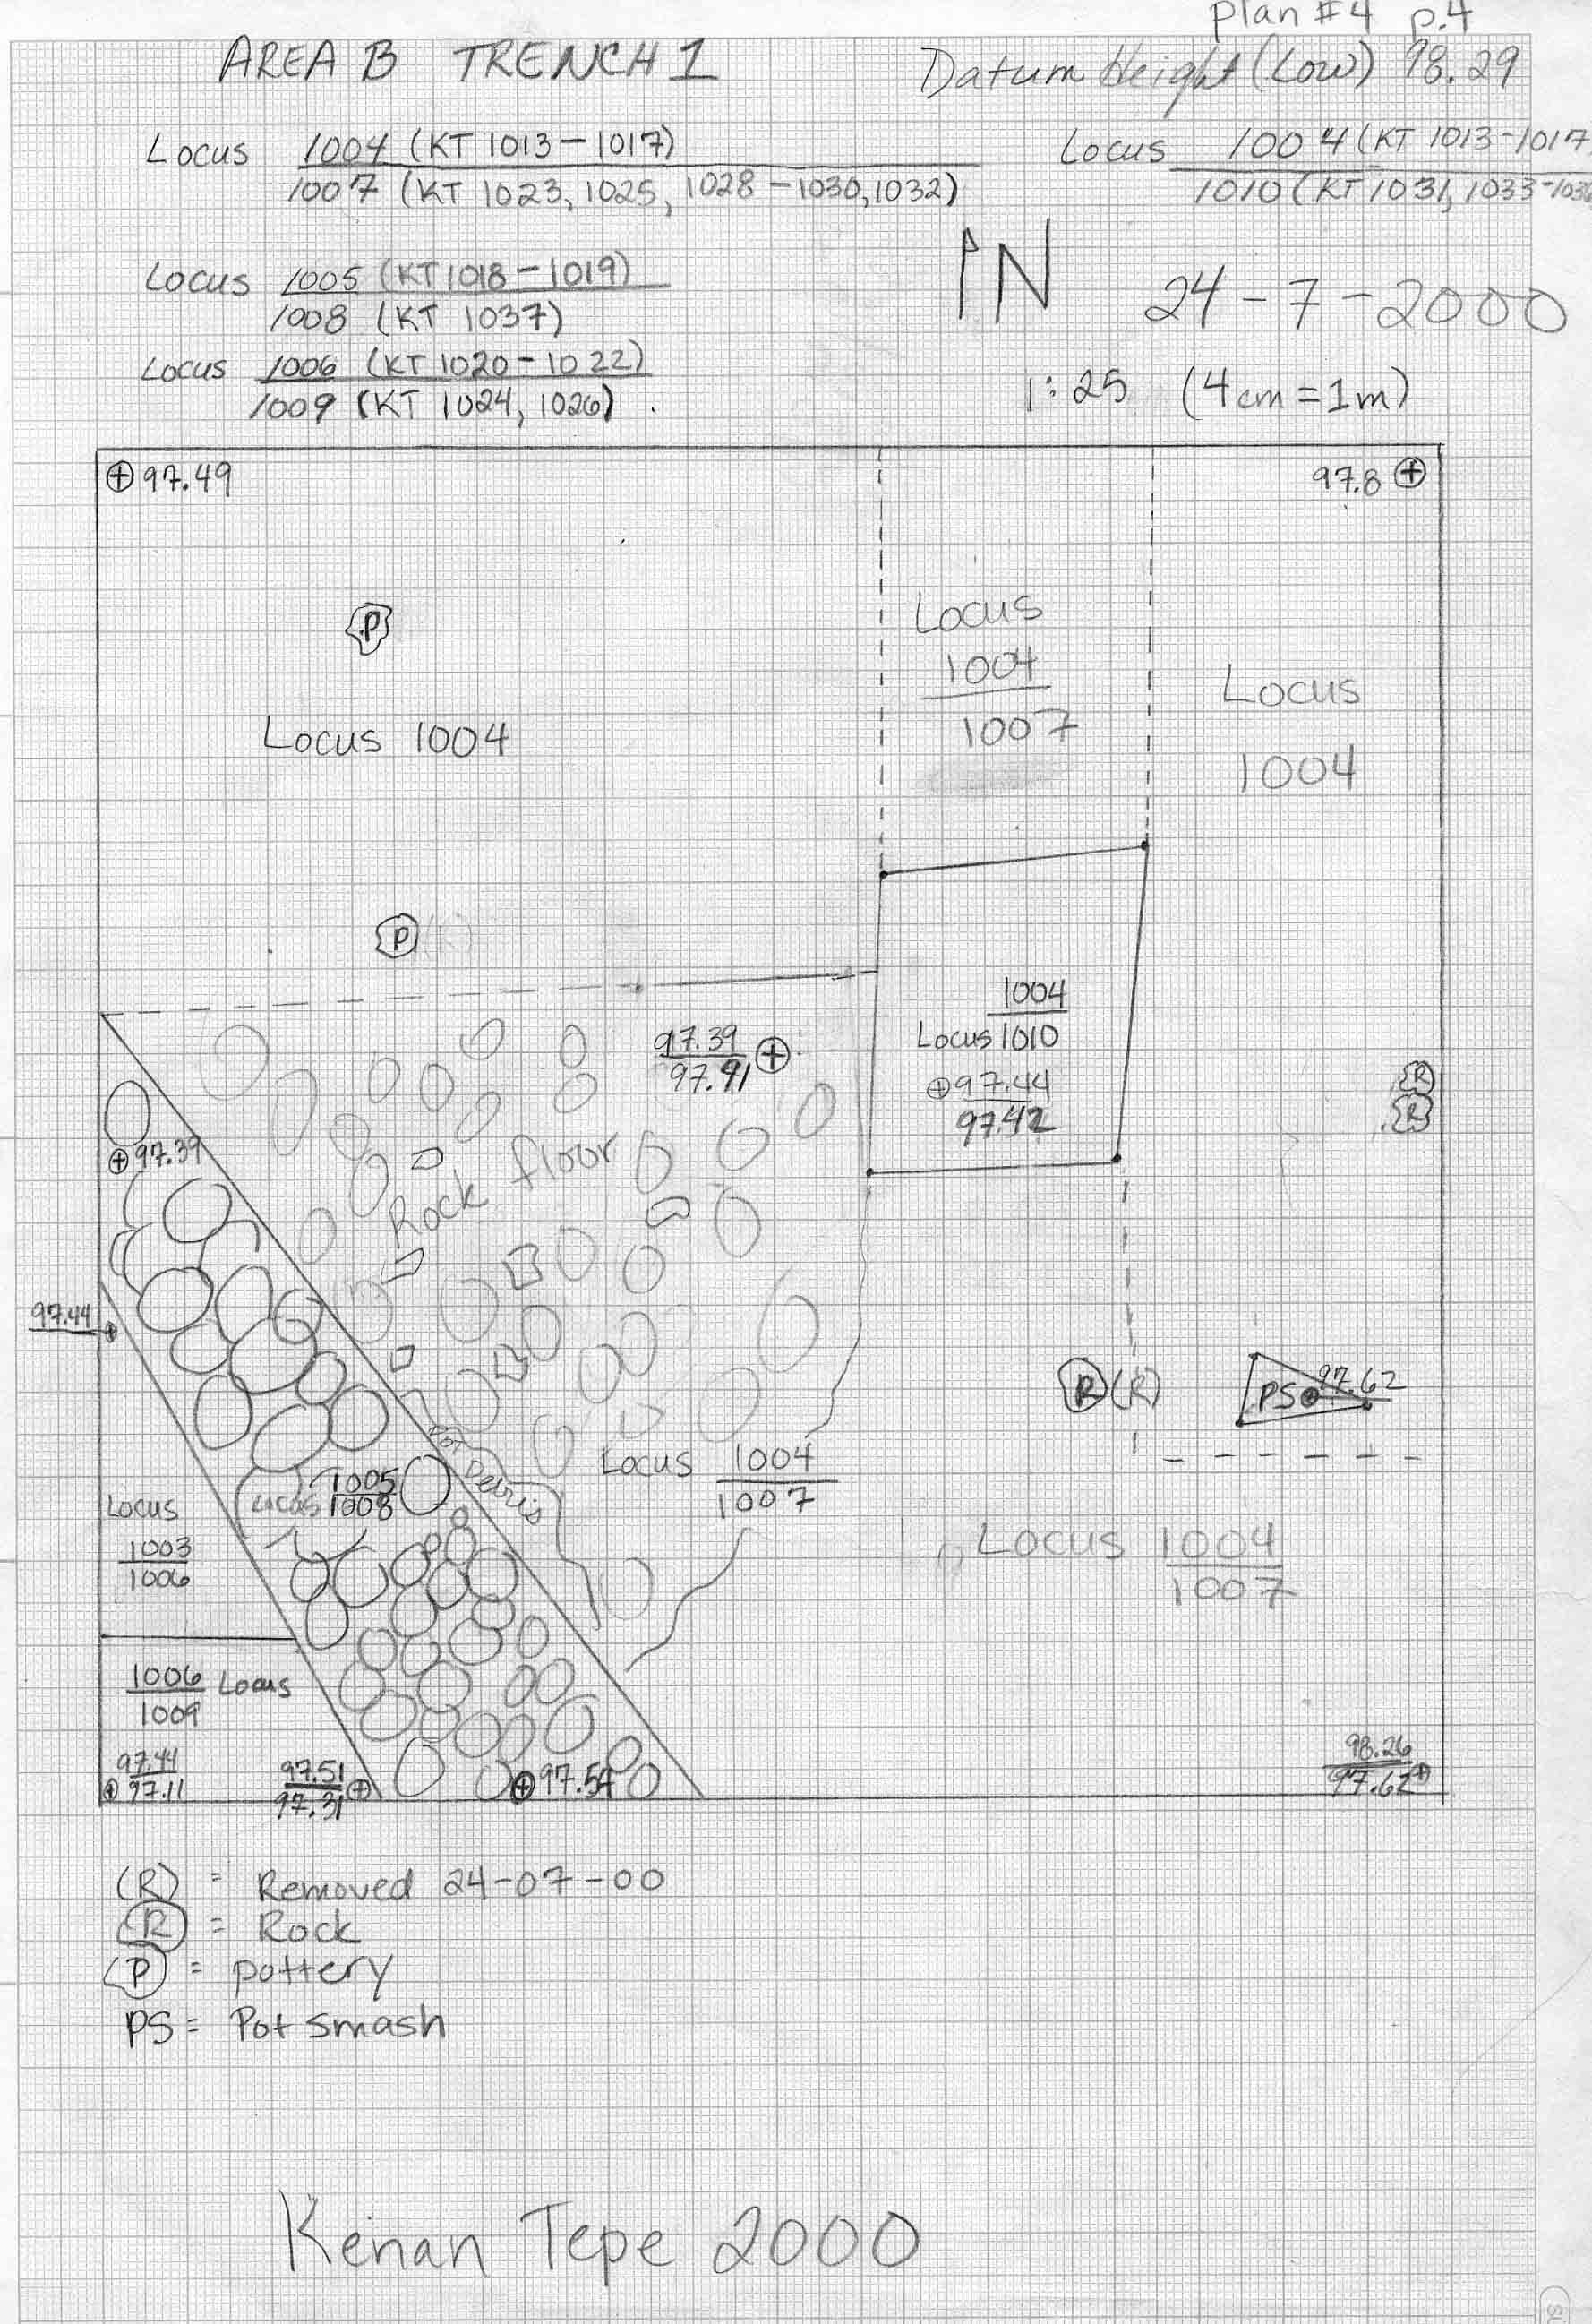 plan #4 p.4
AREA B TRENCH 1
Datum Height (Low) 98.29
Locus 1004 (KT 1013-1017)
1007 (KT 1023, 1025, 1028-1030, 1032)
Locus 1004 (KT 1013-1017
1010 (KT 1031, 1033-103
Locus 1005 (KT 1018-1019)
1008 (KT 1037)
N
24-7-2000
Locus 1006 (KT 1020-1022)
1009 (KT 1024, 1026)
1:25 (4cm=1m)
97.49
97.8
P
Locus
1004
1007
Locus 1004
Locus
1004
P
1004
Locus 1010
97.44
97.42
97.39
97.91
R
R
97.39
Rock floor
97.44
R (R)
PS 97.62
Debris
Locus 1004
1007
Locus 1005
1008
Locus
1003
1006
Locus 1004
1007
1006 Locus
1009
97.44
97.11
97.51
97.31
97.54
98.26
97.62
(R) = Removed 24-07-00
R = Rock
P = pottery
PS = Pot smash
Kenan Tepe 2000